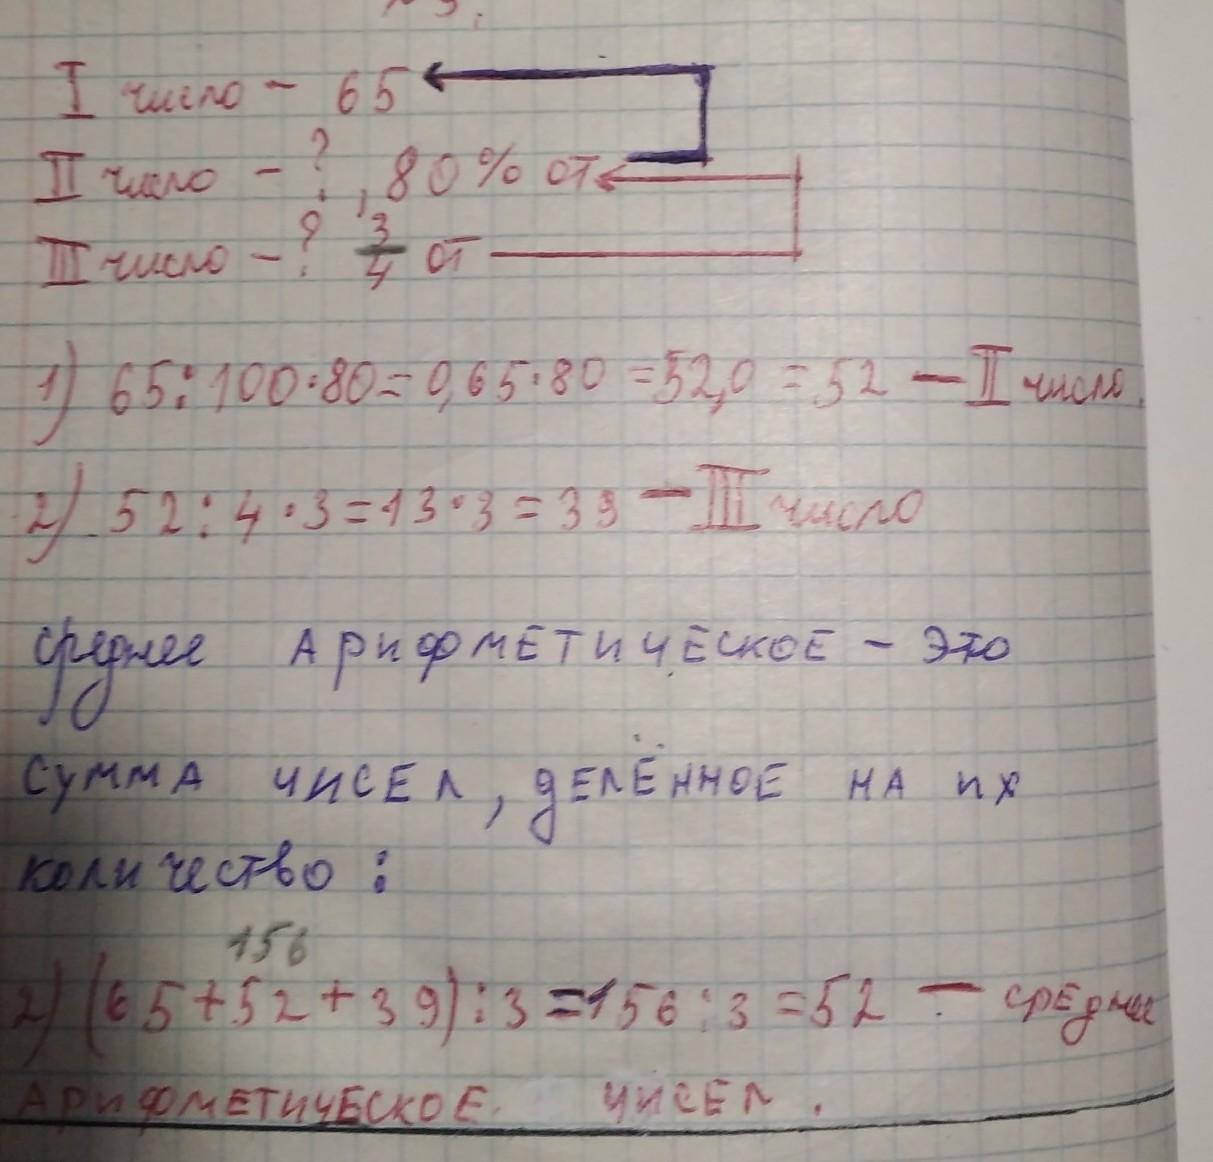 I число - 65
II число - ?, 80% от
III число - ? 3/4 от
1) 65:100·80=0,65·80=52,0=52 — II число
2) 52:4·3=13·3=39 — III число
среднее АРИФМЕТИЧЕСКОЕ - это
СУММА ЧИСЕЛ, ДЕЛЁННОЕ НА ИХ
количество:
156
2) (65+52+39):3=156:3=52 — среднее
АРИФМЕТИЧЕСКОЕ ЧИСЕЛ.